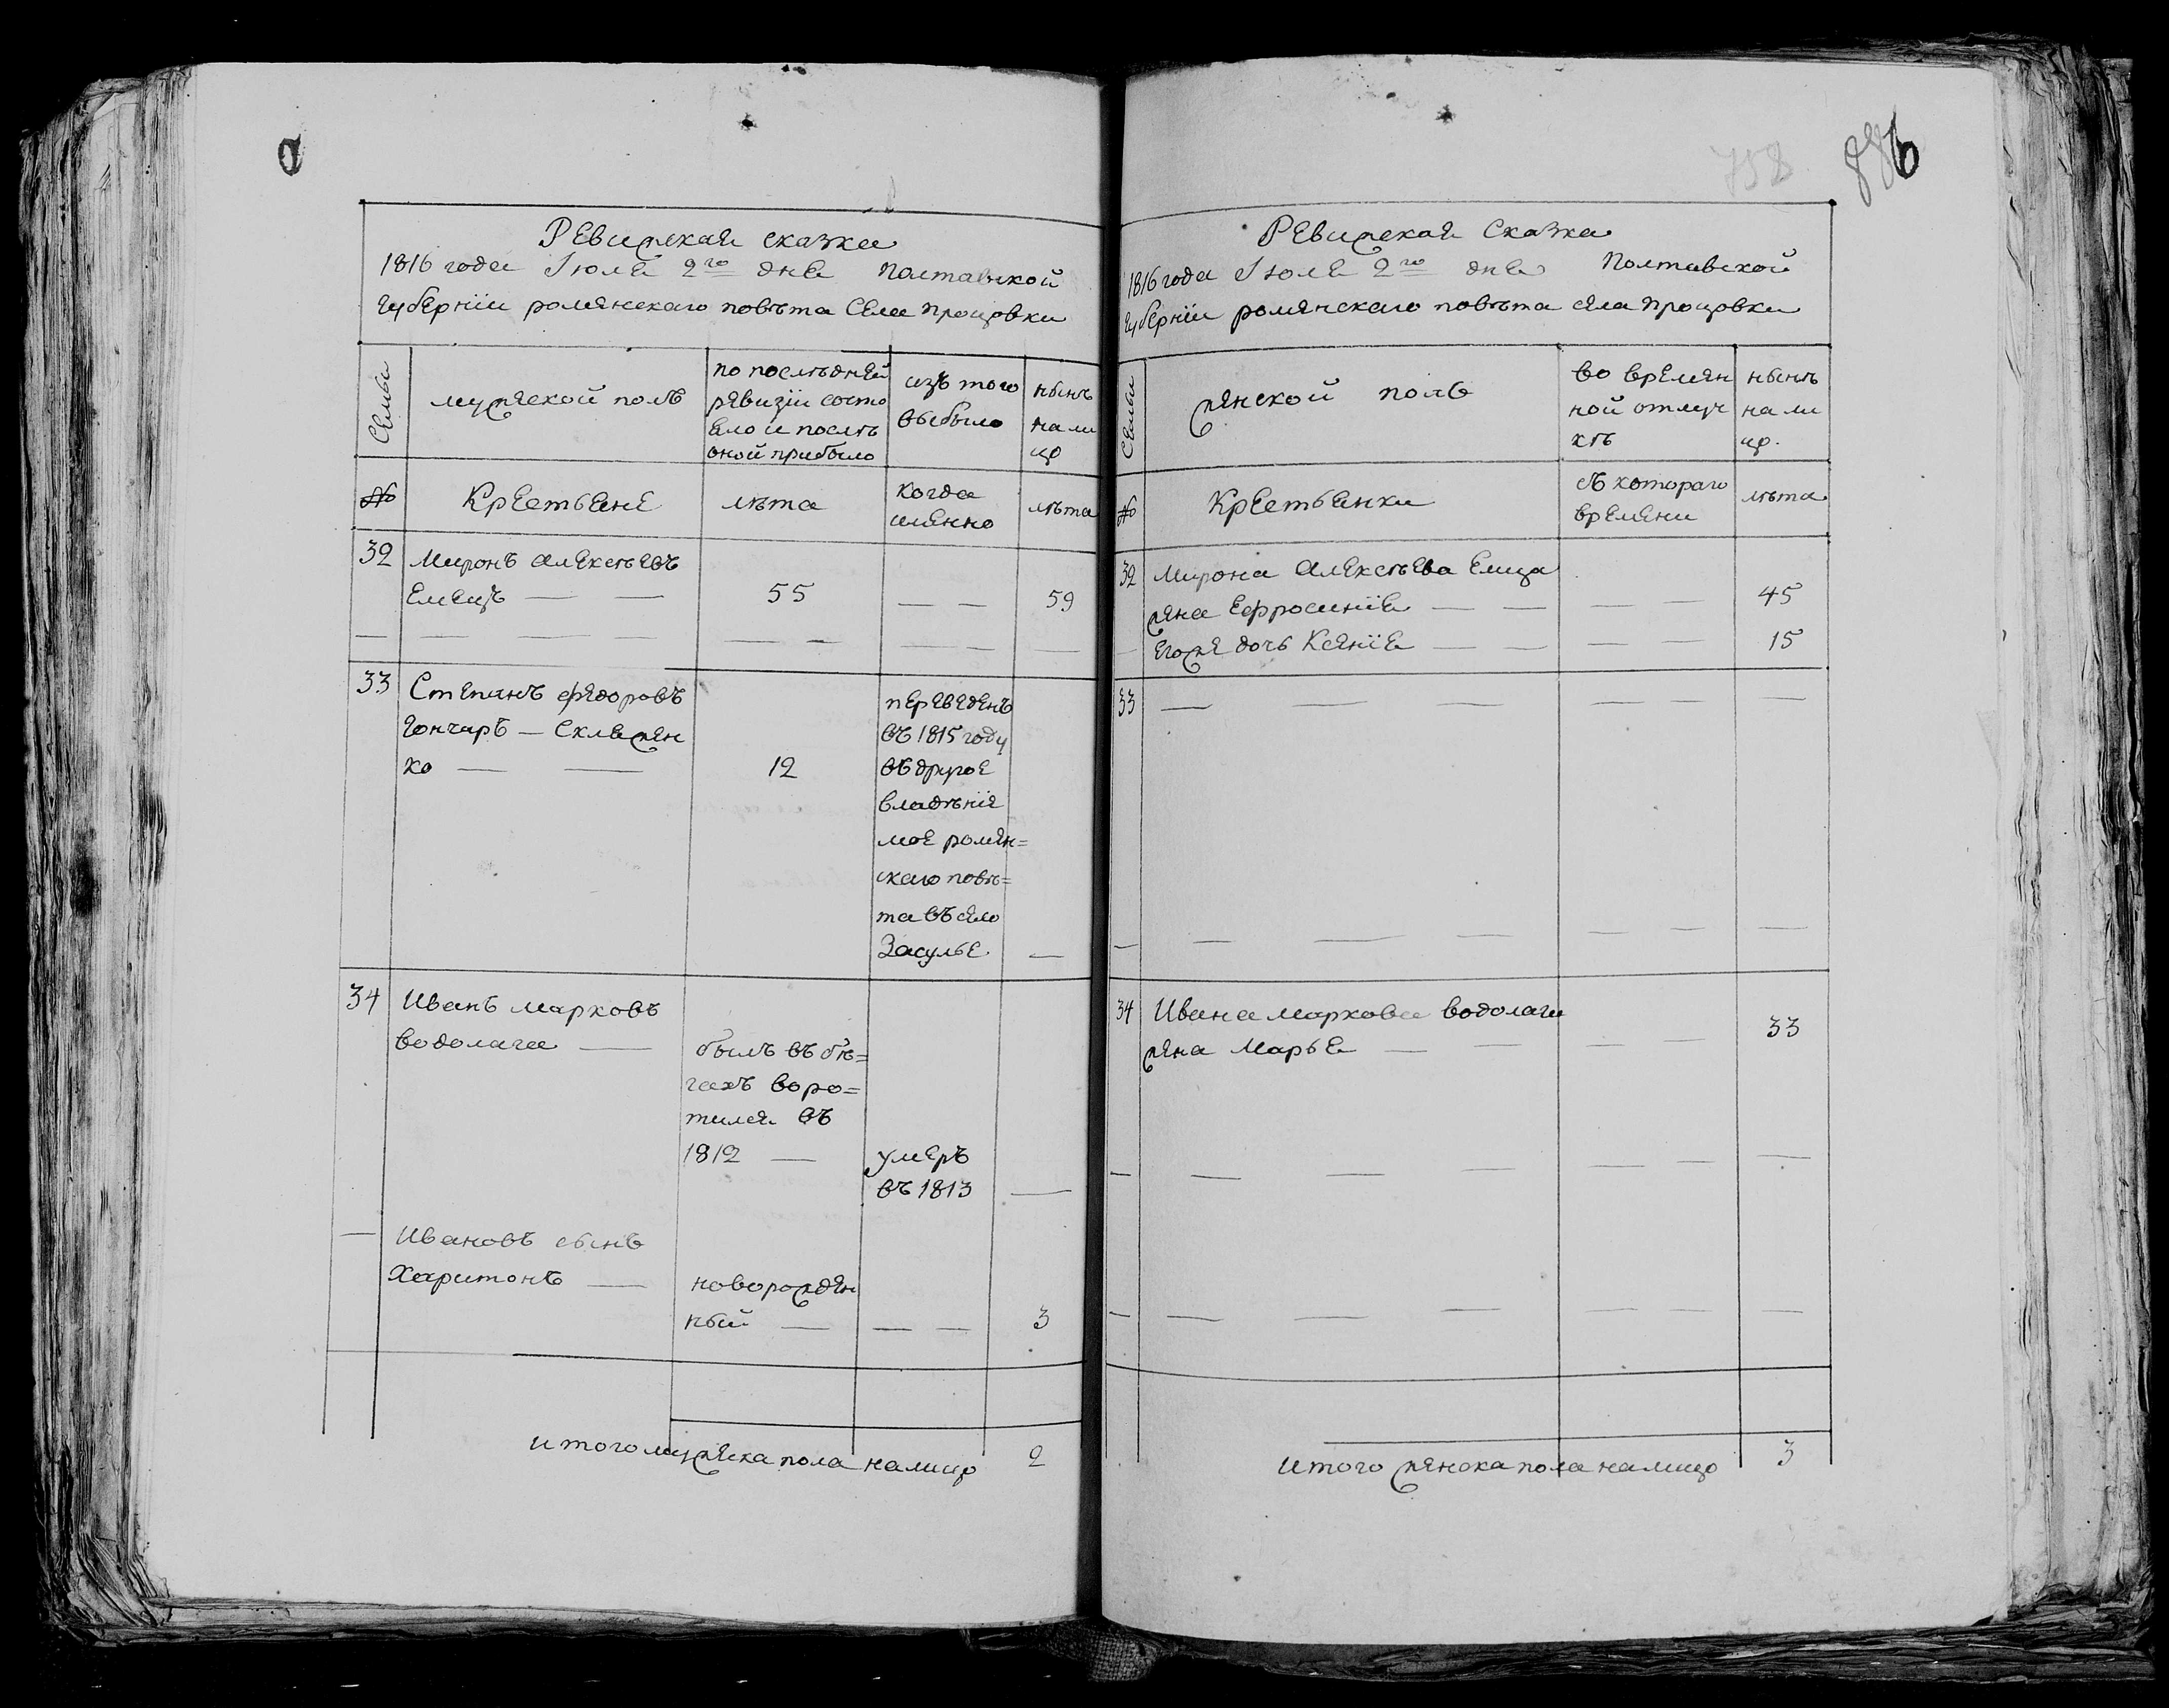 758
886
Ревижская сказка
1816 года Июля 2го дня Полтавской
Губернїи роменскаго повѣта Села процовки
Семьи
мужескої полъ
по последней
ревизїи состо
яло и послѣ
оной прибыло
изъ того
выбыло
нынѣ
на ли
цо
№
Крестьяне
лѣта
когда
именно
лѣта
32
Миронъ Алексѣевъ
Емецъ — —
55
— —
59
33
Степанъ федоровъ
Гончаръ — Скляжен
ко — —
12
переведенъ
въ 1815 году
въ другое
владѣнїе
мое ромен=
скаго повѣ=
та въ село
Засулье
—
34
Иванъ марковъ
водолага —
былъ въ бѣ=
гахъ воро=
тился въ
1812 —
умеръ
въ 1813
—
— Ивановъ сынъ
Харитонъ —
новорожден
ный —
— —
3
итого мужеска пола налицо 2
Ревижская Сказка
1816 года Июля 2го дня Полтавской
Губернїи роменскаго повѣта села процовки
Семьи
женской полъ
во времян
ной отлуч
кѣ
нынѣ
на ли
цо.
№
Крестьянки
съ котораго
времени
лѣта
32
Мирона Алексѣева Емца
жена Ефросинїя — —
— —
45
— егоже дочь Ксенїя — —
— —
15
33
— — —
— —
—
34
Ивана маркова водолаги
жена Марья — —
— —
33
итого женска пола налицо 3